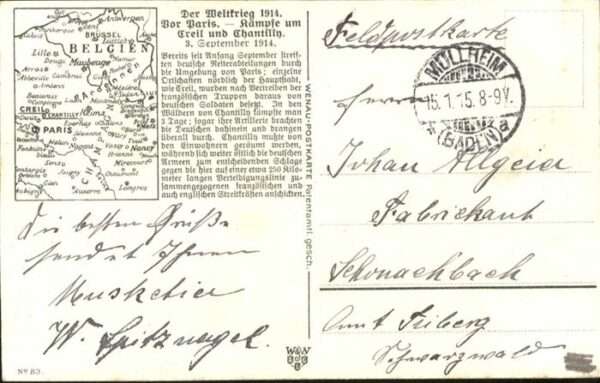 Der Weltkrieg 1914.
Vor Paris. – Kämpfe um
Creil und Chantilly.
3. September 1914.
Bereits seit Anfang September streif-
ten deutsche Reiterabteilungen durch
die Umgebung von Paris; einzelne
Ortschaften nördlich der Hauptstadt,
wie Creil, wurden nach Vertreiben der
französischen Truppen daraus von
deutschen Soldaten besetzt. In den
Wäldern von Chantilly kämpfte man
3 Tage; sogar ihre Artillerie brachten
die Deutschen dahinein und drangen
überall durch. Chantilly mußte von
den Einwohnern geräumt werden,
während sich weiter östlich die deutschen
Armeen zum entscheidenden Schlage
gegen die hier auf einer etwa 250 Kilo-
meter langen Verteidigungslinie zu-
sammengezogenen französischen und
auch englischen Streitkräften anschickten.
BRÜSSEL
BELGIEN
Lille
Maubeuge
Arras
Abbeville
Cambrai
Amiens
CREIL
CHANTILLY
Reims
PARIS
Epernay
Chalons
Nancy
Troyes
Auxerre
Langres
WENAU-POSTKARTE Patentamtl. gesch.
Feldpostkarte
MÜLLHEIM
15.1.15.8-9V.
* (BADEN) a
Herrn
Johan Allgeia
Fabrickant
Schonachbach
Amt Triberg
Schwarzwald
Die besten Grüße
sendet Ihnen
Musketier
W. Spitznagel.
No 83.